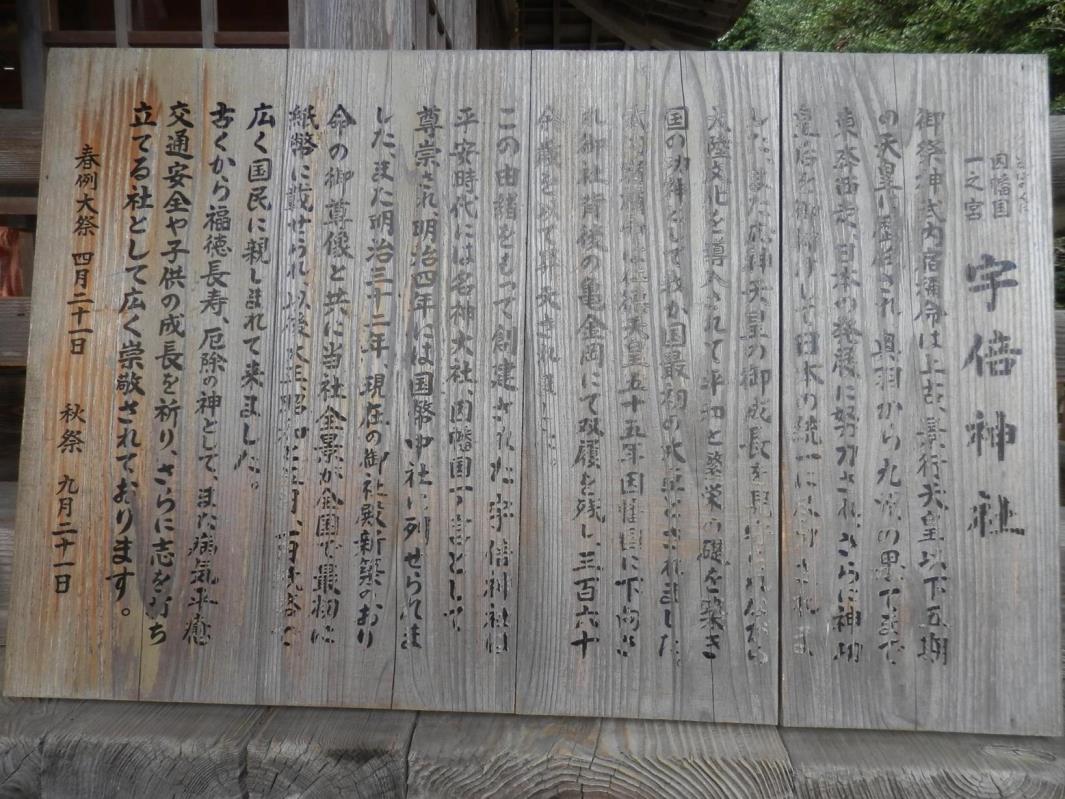 因幡国
一之宮
宇倍神社
御祭神武内宿禰命は上古、景行天皇以下五朝
の天皇に され奥羽から九州の果てまで
東奔西走、日本の発展に努力され、さらに神功
皇后を御助けして日本の統一に され ま
した。また応神天皇の御成長を見守られながら
大陸文化を導入されて平和と繁栄の礎を築き
国の功神として我が国最初の大臣とされました。
武内宿禰命は仁徳天皇五十五年因幡国に下向さ
れ御社背後の亀金岡にて双履を残し三百六十
余歳を以て昇天され ました。
この由緒をもって創建された宇倍神社は
平安時代には名神大社、因幡国一の宮として
尊崇され、明治四年には国幣中社に列せられま
した、また明治三十二年、現在の御社殿新築のおり
命の御尊像と共に当社全景が全国で最初に
紙幣に載せられ、以後大正昭和と五円、一円紙幣で
広く国民に親しまれて来ました。
古くから福徳長寿、厄除の神として、また病気平癒
交通安全や子供の成長を祈り、さらに志を打ち
立てる社として広く崇敬されております。
春例大祭 四月二十一日 秋祭 九月二十一日